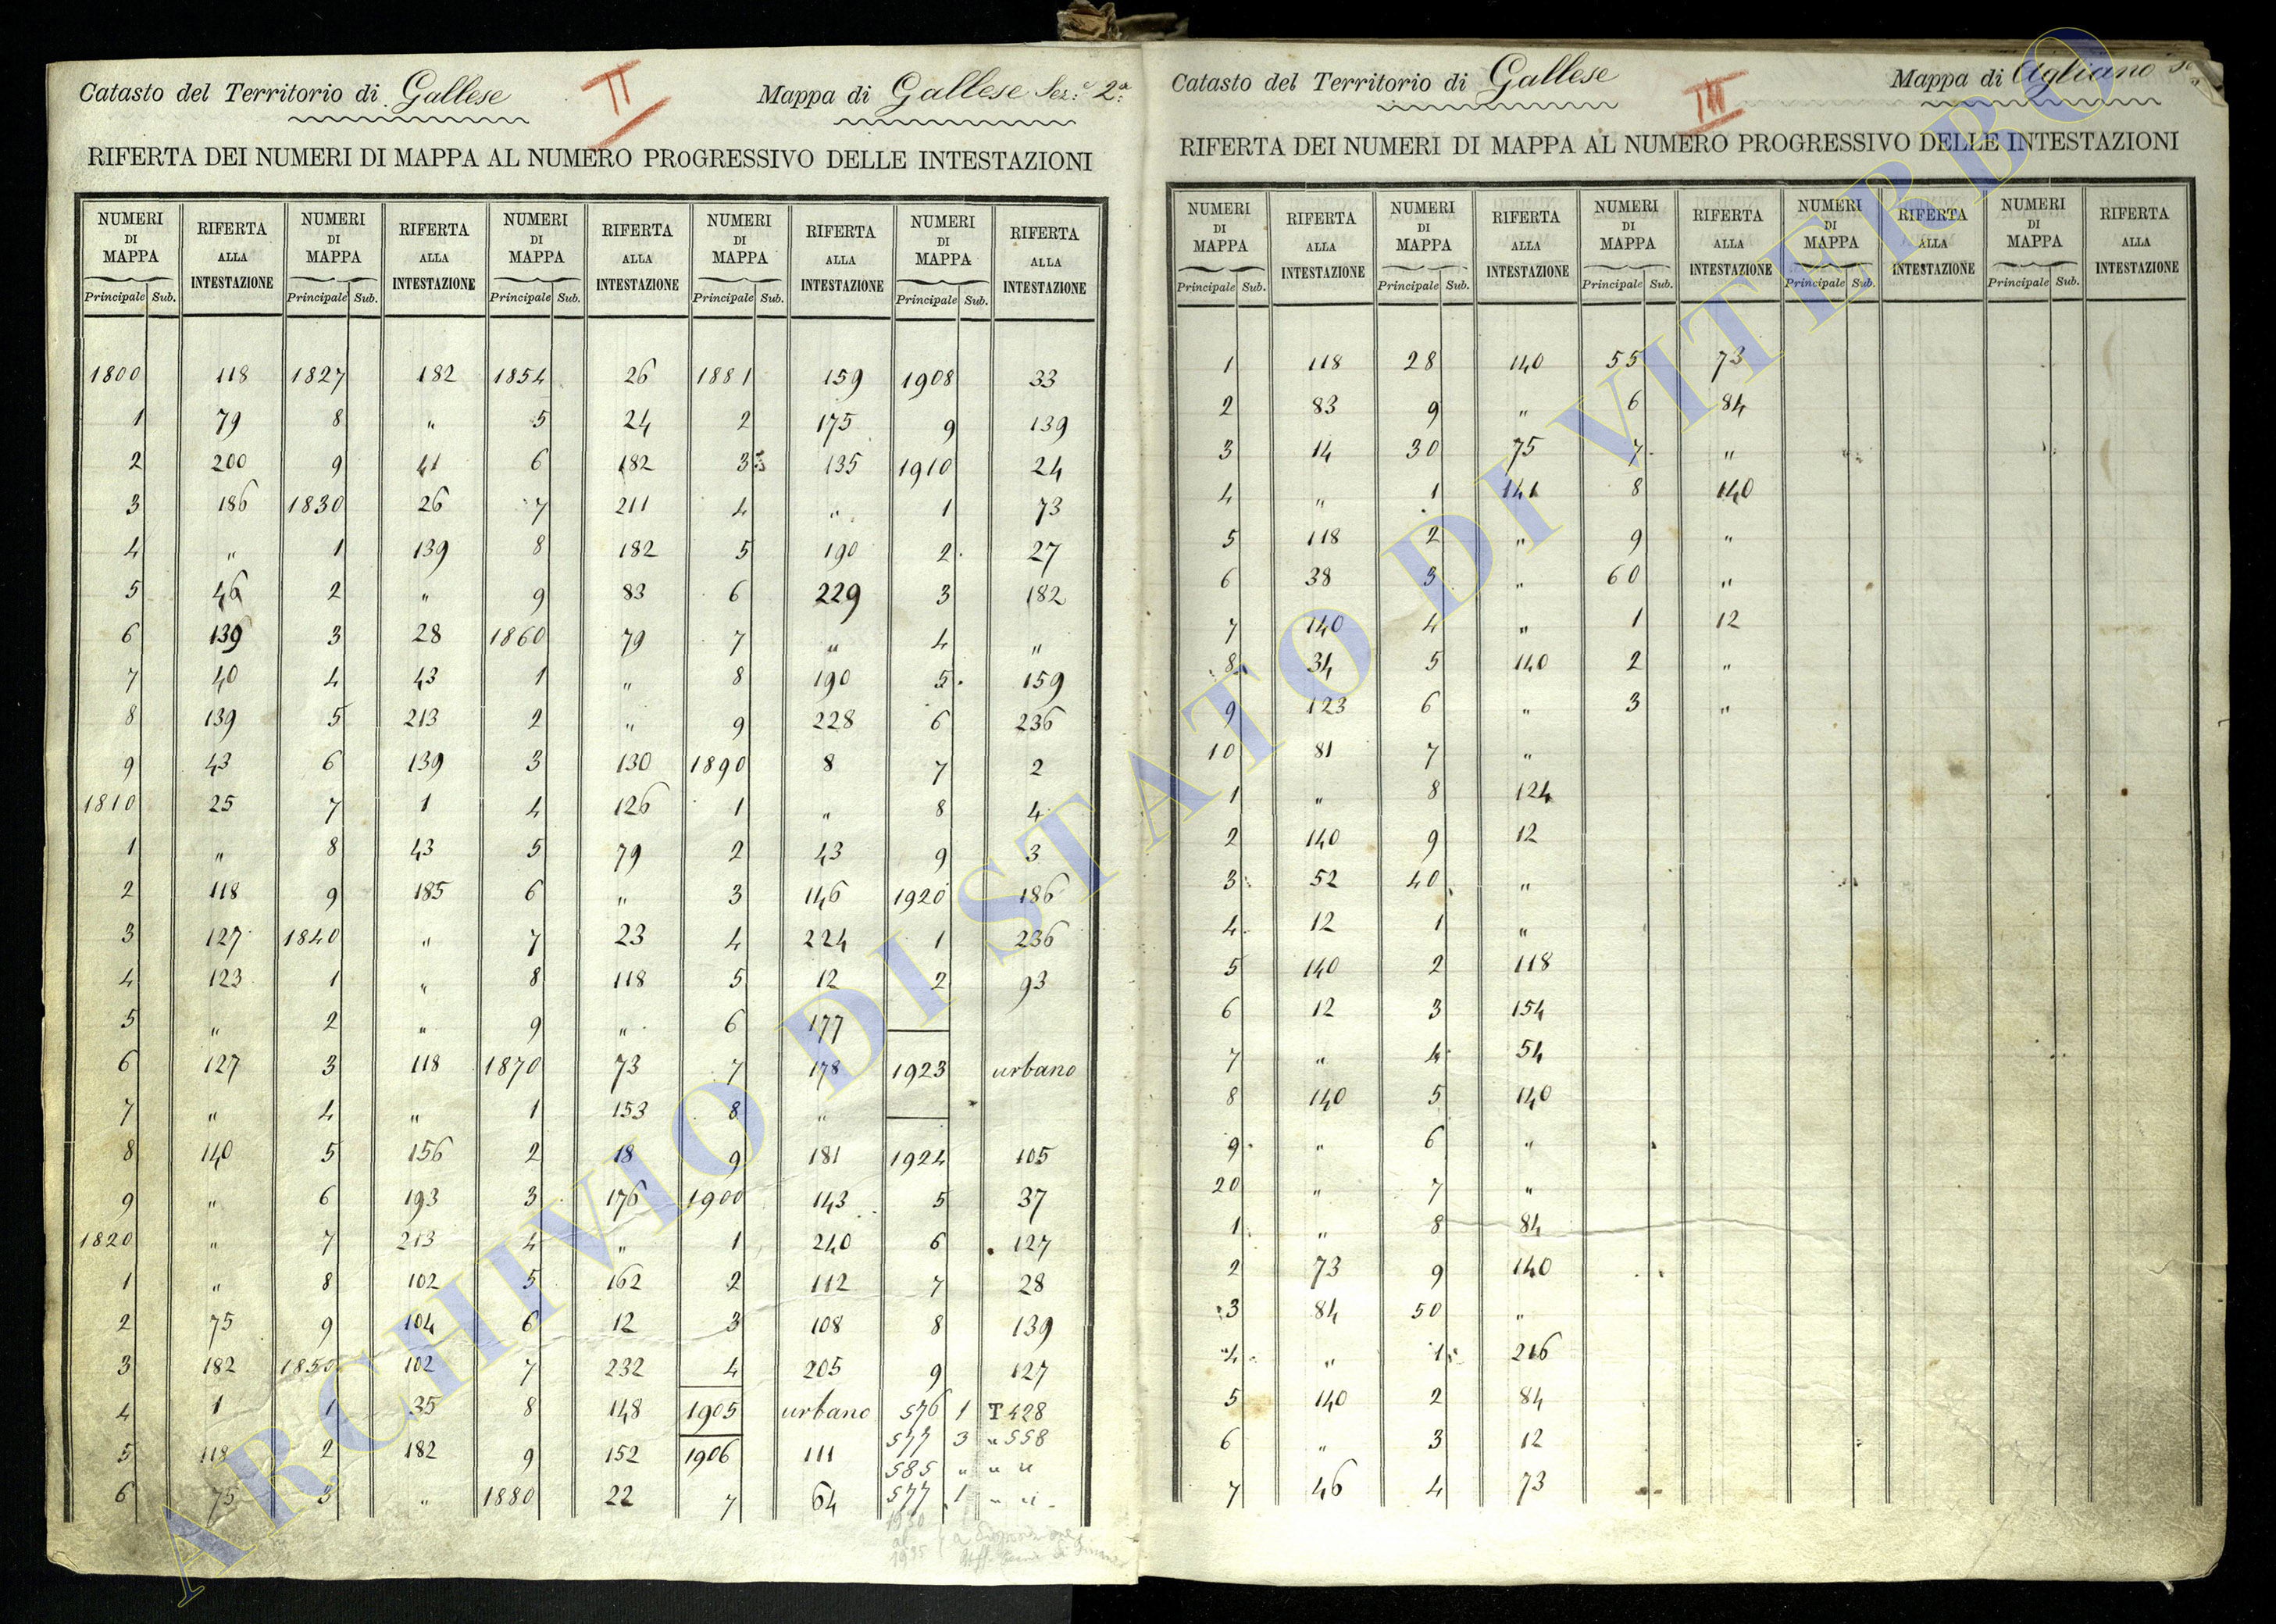 Catasto del Territorio di Gallese II Mappa di Gallese Sez:e 2a:
RIFERTA DEI NUMERI DI MAPPA AL NUMERO PROGRESSIVO DELLE INTESTAZIONI
NUMERI DI MAPPA RIFERTA ALLA INTESTAZIONE NUMERI DI MAPPA RIFERTA ALLA INTESTAZIONE NUMERI DI MAPPA RIFERTA ALLA INTESTAZIONE NUMERI DI MAPPA RIFERTA ALLA INTESTAZIONE NUMERI DI MAPPA RIFERTA ALLA INTESTAZIONE
Principale Sub. Principale Sub. Principale Sub. Principale Sub. Principale Sub.
1800 118 1827 182 1854 26 1881 159 1908 33
1 79 8 " 5 24 2 175 9 139
2 200 9 41 6 182 3 135 1910 24
3 186 1830 26 7 211 4 " 1 73
4 " 1 139 8 182 5 190 2 27
5 46 2 " 9 83 6 229 3 182
6 139 3 28 1860 79 7 " 4 "
7 40 4 43 1 " 8 190 5 159
8 139 5 213 2 " 9 228 6 236
9 43 6 139 3 130 1890 8 7 2
1810 25 7 1 4 126 1 " 8 4
1 " 8 43 5 79 2 43 9 3
2 118 9 185 6 " 3 146 1920 186
3 127 1840 " 7 23 4 224 1 236
4 123 1 " 8 118 5 12 2 93
5 " 2 " 9 " 6 177
6 127 3 118 1870 73 7 178 1923 urbano
7 " 4 " 1 153 8 "
8 140 5 156 2 18 9 181 1924 105
9 " 6 193 3 176 1900 143 5 37
1820 " 7 213 4 " 1 240 6 127
1 " 8 102 5 162 2 112 7 28
2 75 9 104 6 12 3 108 8 139
3 182 1850 102 7 232 4 205 9 127
4 1 1 35 8 148 1905 urbano 576 1 T 428
5 118 2 182 9 152 1906 111 577 3 " 558
585 " " "
6 75 3 " 1880 22 7 64 577 1 " "
1930
al
1935
Catasto del Territorio di Gallese III Mappa di Agliano
RIFERTA DEI NUMERI DI MAPPA AL NUMERO PROGRESSIVO DELLE INTESTAZIONI
NUMERI DI MAPPA RIFERTA ALLA INTESTAZIONE NUMERI DI MAPPA RIFERTA ALLA INTESTAZIONE NUMERI DI MAPPA RIFERTA ALLA INTESTAZIONE NUMERI DI MAPPA RIFERTA ALLA INTESTAZIONE NUMERI DI MAPPA RIFERTA ALLA INTESTAZIONE
Principale Sub. Principale Sub. Principale Sub. Principale Sub. Principale Sub.
1 118 28 140 55 73
2 83 9 " 6 84
3 14 30 75 7 "
4 " 1 141 8 140
5 118 2 " 9 "
6 38 3 " 60 "
7 140 4 " 1 12
8 34 5 140 2 "
9 123 6 " 3 "
10 81 7 "
1 " 8 124
2 140 9 12
3 52 40 "
4 12 1 "
5 140 2 118
6 12 3 154
7 " 4 54
8 140 5 140
9 " 6 "
20 " 7 "
1 " 8 84
2 73 9 140
3 84 50 "
4 " 1 216
5 140 2 84
6 " 3 12
7 46 4 73
ARCHIVIO DI STATO DI VITERBO